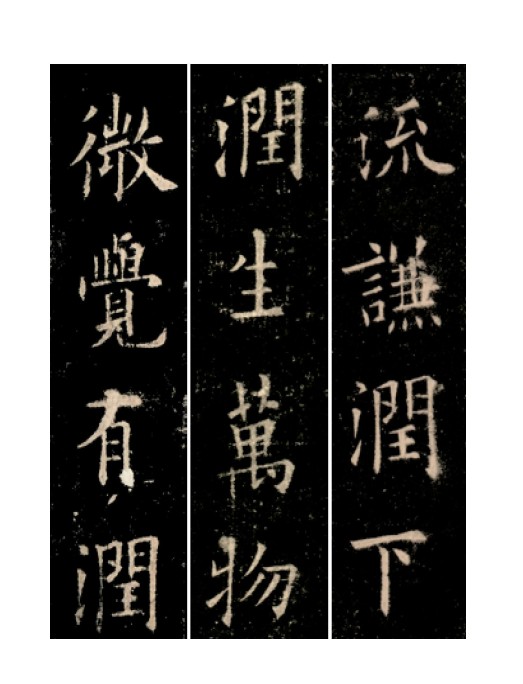 流謙潤下
潤生萬物
微覺有潤